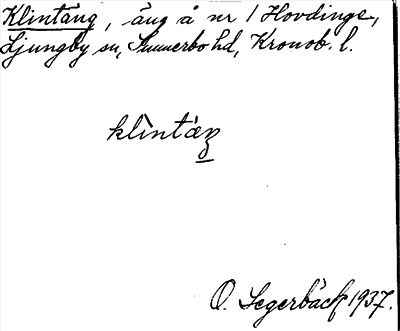 Klintäng, äng å nr 1 Hovdinge,
Ljungby sn, Sunnerbo hd, Kronob. l.
klìntæŋ
O. Segerbäck 1937.